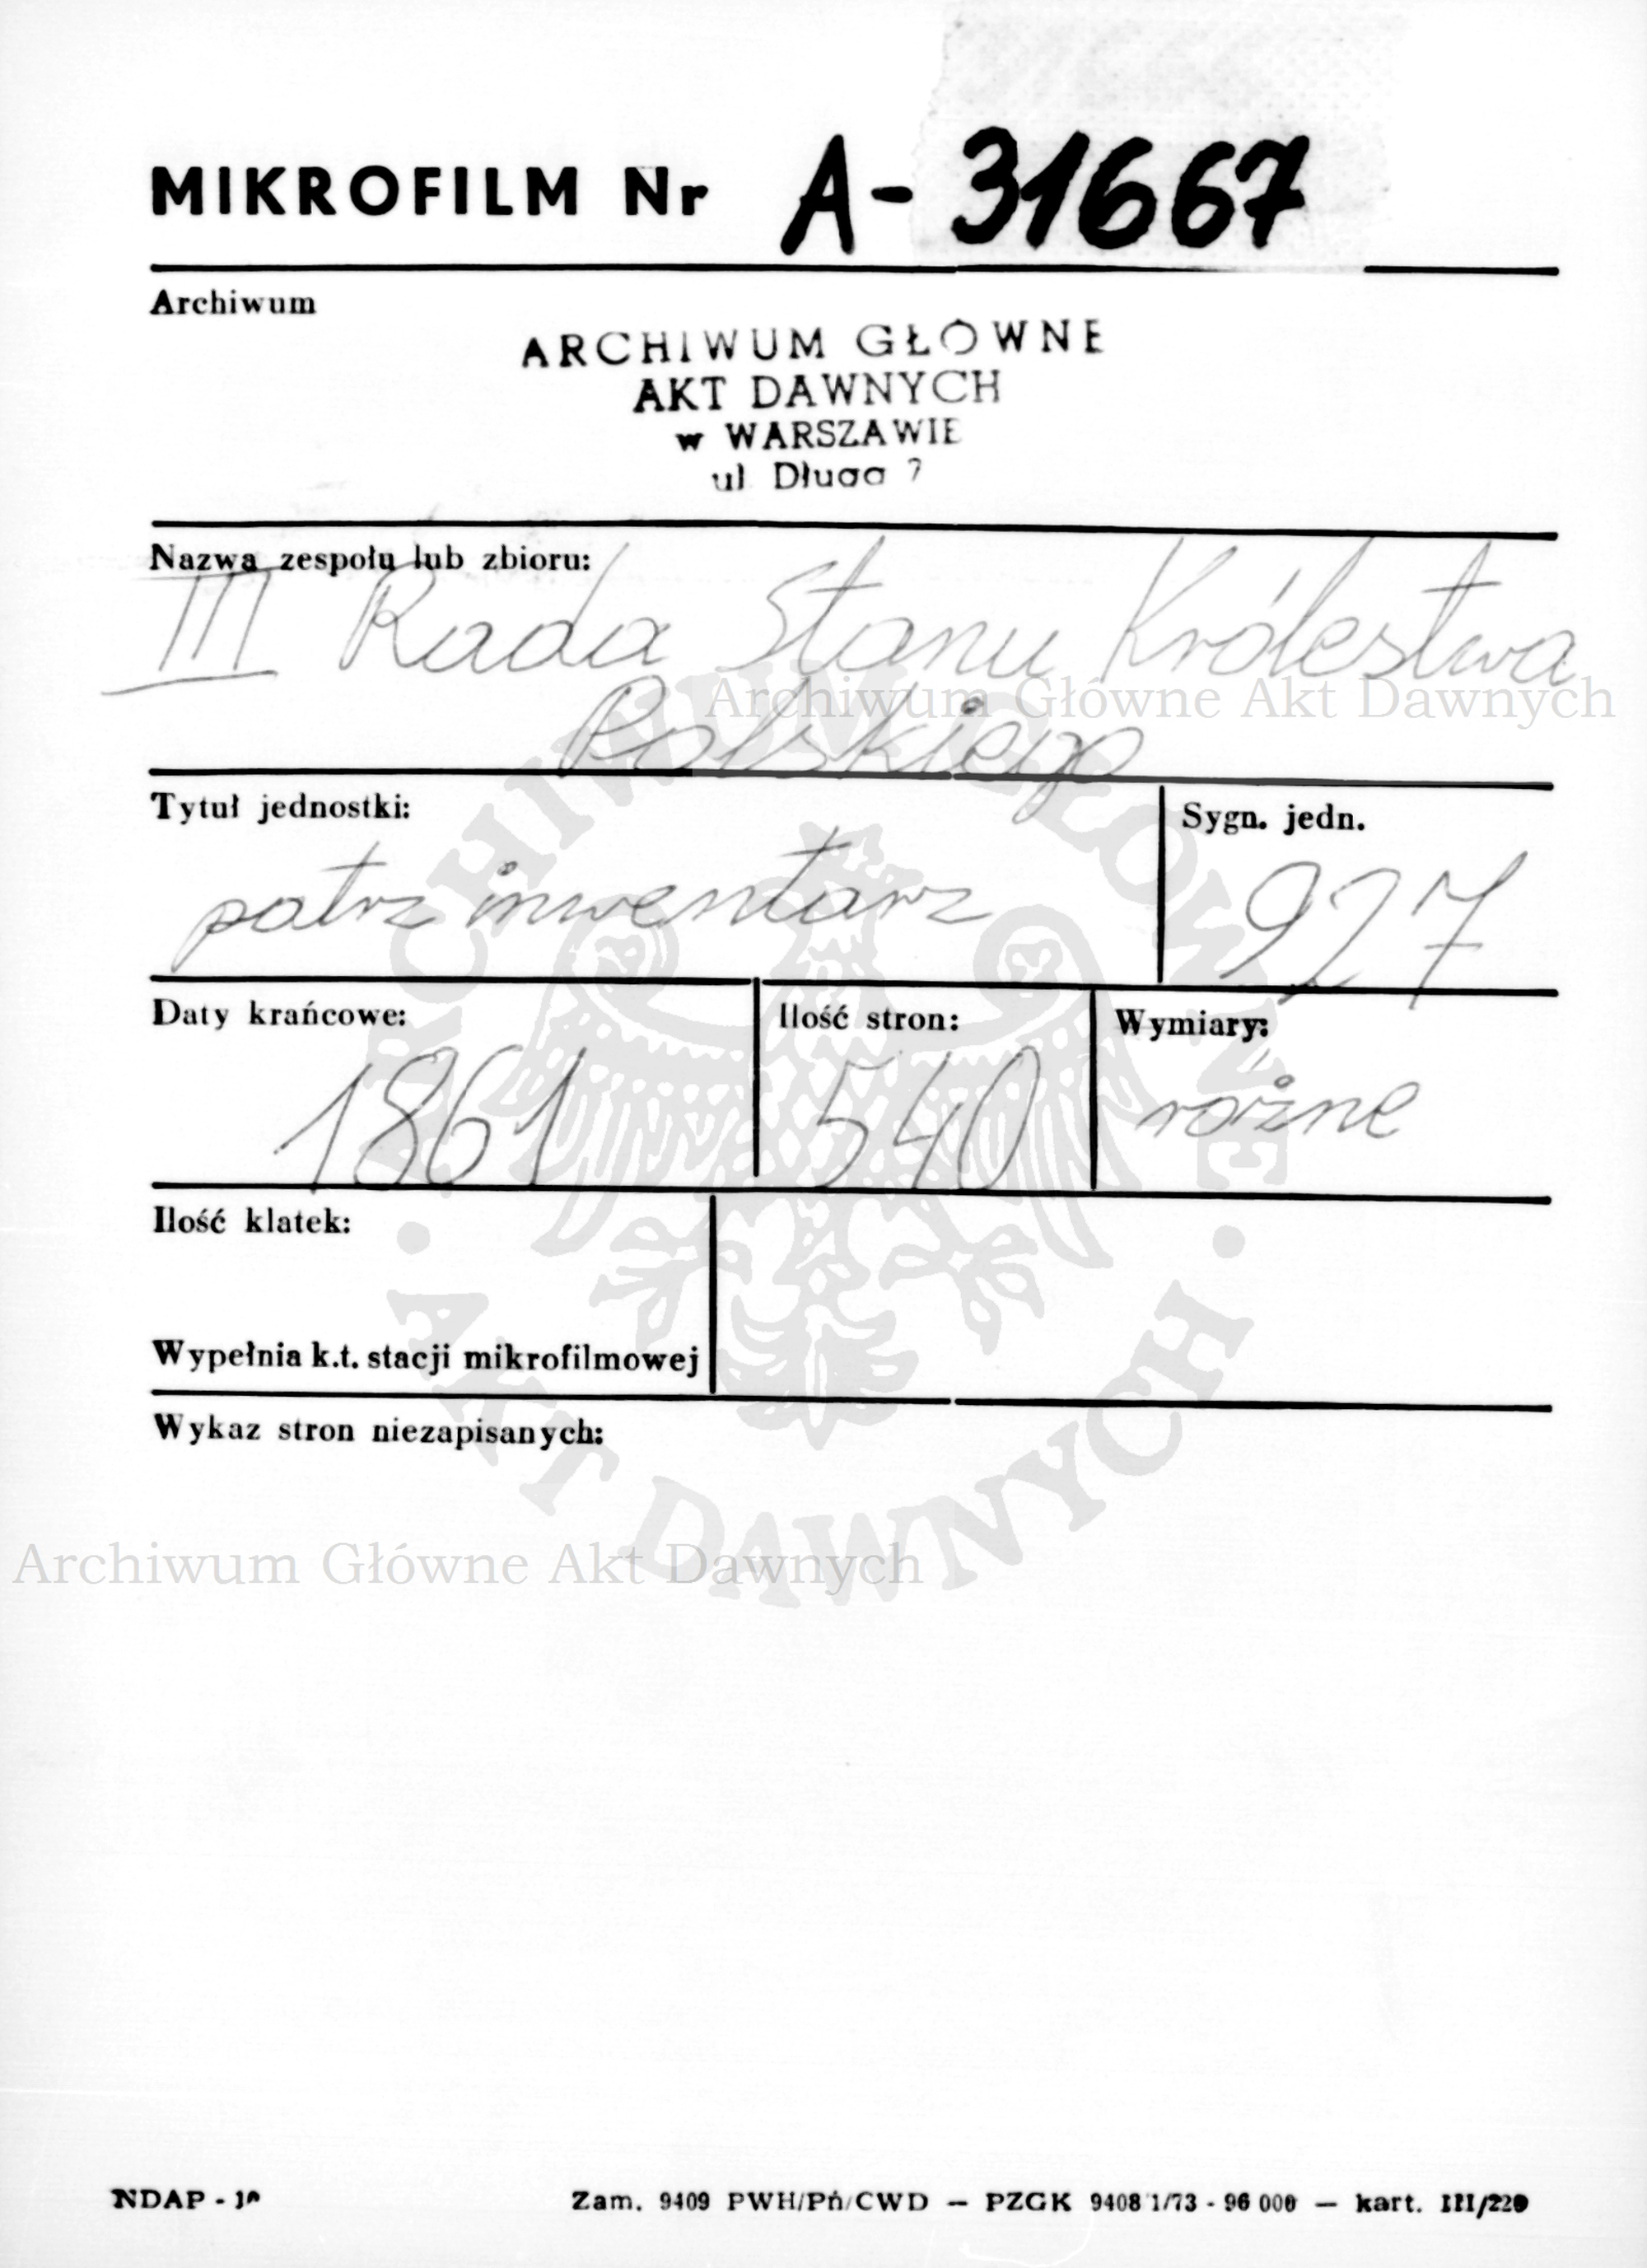 MIKROFILM Nr A-31667
Archiwum
ARCHIWUM GŁÓWNE
AKT DAWNYCH
w WARSZAWIE
ul Długa 7
Nazwa zespołu lub zbioru:
III Rada Stanu Królestwa
Polskiego
Archiwum Główne Akt Dawnych
Tytuł jednostki:
Sygn. jedn.
patrz inwentarz
927
Daty krańcowe:
Ilość stron:
Wymiary:
1861
540
różne
Ilość klatek:
Wypełnia k.t. stacji mikrofilmowej
Wykaz stron niezapisanych:
ARCHIWUM GŁÓWNE
· AKT DAWNYCH ·
Archiwum Główne Akt Dawnych
NDAP -
Zam. 9409 PWH/Pń/CWD — PZGK 9408 1/73 - 96 000 — kart. III/220